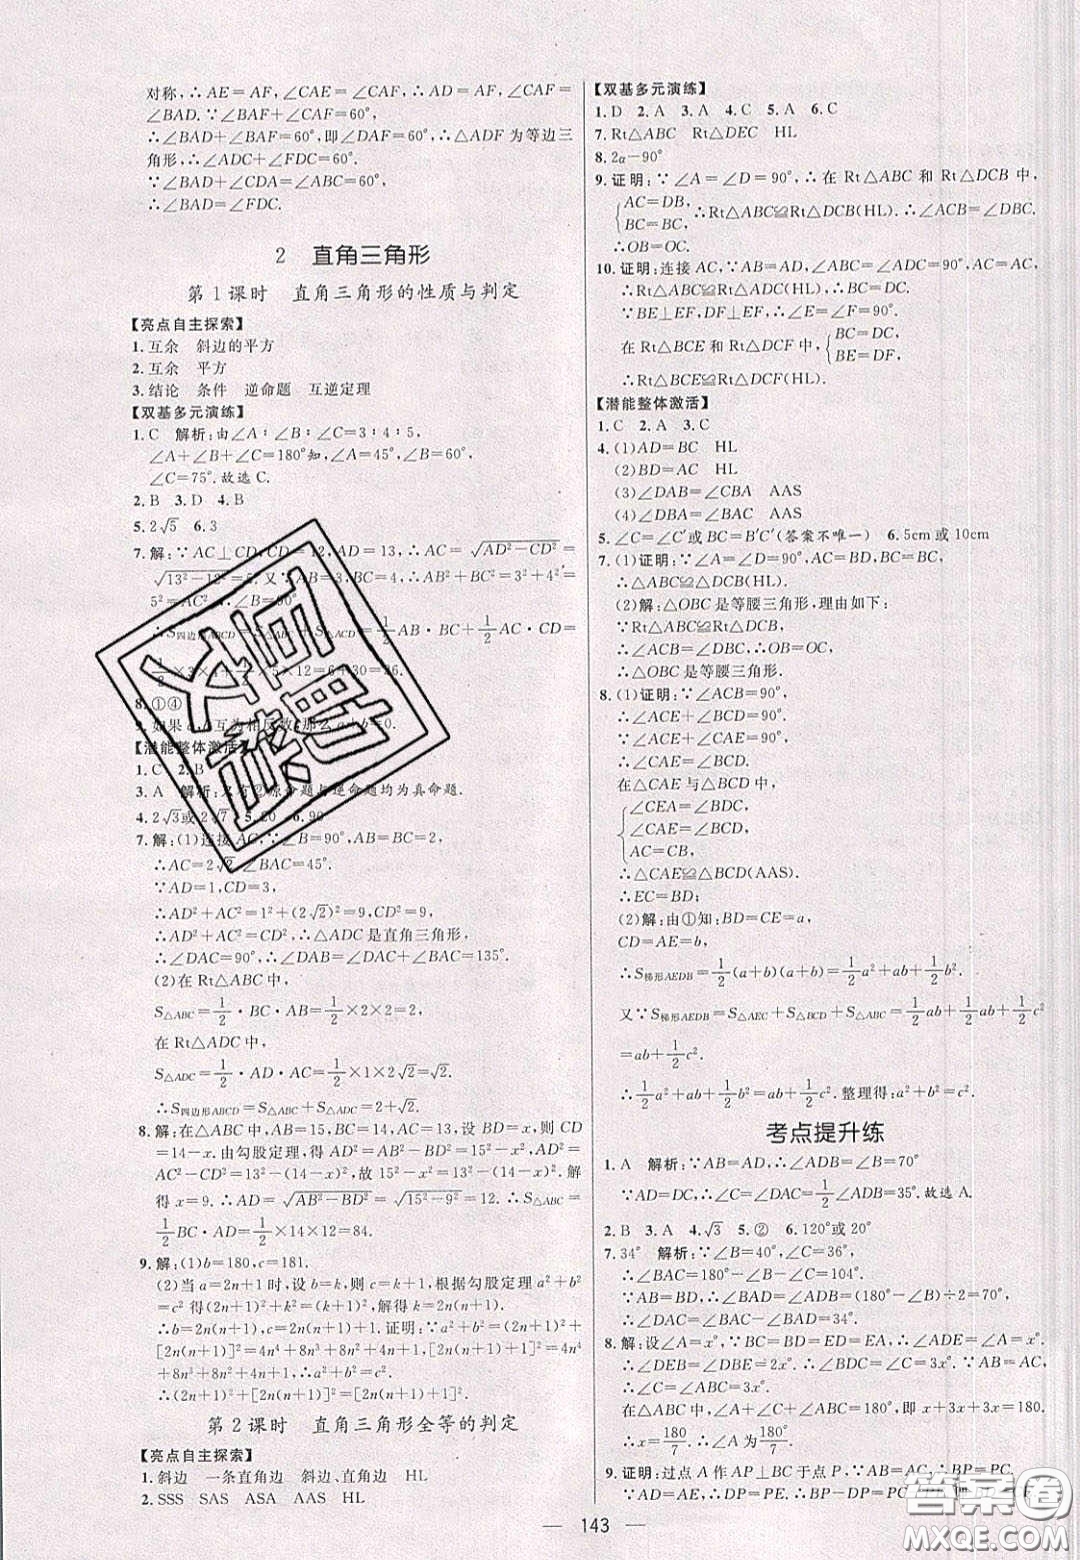 对称,∴AE=AF,∠CAE=∠CAF,∴AD=AF,∠CAF=
∠BAD.∵∠BAF+∠CAF=60°,
∴∠BAD+∠BAF=60°,即∠DAF=60°,∴△ADF为等边三
角形,∴∠ADC+∠FDC=60°.
∵∠BAD+∠CDA=∠ABC=60°,
∴∠BAD=∠FDC.
2 直角三角形
第1课时 直角三角形的性质与判定
【亮点自主探索】
1.互余 斜边的平方
2.互余 平方
3.结论 条件 逆命题 互逆定理
【双基多元演练】
1.C 解析:由∠A∶∠B∶∠C=3∶4∶5,
∠A+∠B+∠C=180°知,∠A=45°,∠B=60°,
∠C=75°.故选C.
2.B 3.D 4.B
5.2√5 6.3
7.解:∵AC⊥CD,CD=12,AD=13,∴AC=√(AD²-CD²)=
√(13²-12²)=5.又∵AB=3,BC=4,∴AB²+BC²=3²+4²=
5²=AC²,∴∠B=90°.
∴S四边形ABCD=S△ABC+S△ACD=1/2 AB·BC+1/2 AC·CD=
1/2×3×4+1/2×5×12=6+30=36.
8.①④
9.如果a,b互为相反数,那么a+b=0.
【潜能整体激活】
1.C 2.B
3.A 解析:只有②原命题与逆命题均为真命题.
4.2√3或2√7 5.20 6.90
7.解:(1)连接AC,∵∠B=90°,AB=BC=2,
∴AC=2√2,∠BAC=45°.
∵AD=1,CD=3,
∴AD²+AC²=1²+(2√2)²=9,CD²=9,
∴AD²+AC²=CD²,∴△ADC是直角三角形,
∴∠DAC=90°,∴∠DAB=∠DAC+∠BAC=135°.
(2)在Rt△ABC中,
S△ABC=1/2·BC·AB=1/2×2×2=2,
在Rt△ADC中,
S△ADC=1/2·AD·AC=1/2×1×2√2=√2.
∴S四边形ABCD=S△ABC+S△ADC=2+√2.
8.解:在△ABC中,AB=15,BC=14,AC=13,设BD=x,则CD
=14-x.由勾股定理,得AD²=AB²-BD²=15²-x²,AD²=
AC²-CD²=13²-(14-x)²,故15²-x²=13²-(14-x)².解
得x=9.∴AD=√(AB²-BD²)=√(15²-9²)=12.∴S△ABC=
1/2 BC·AD=1/2×14×12=84.
9.解:(1)b=180,c=181.
(2)当a=2n+1时,设b=k,则c=k+1,根据勾股定理a²+b²
=c²得(2n+1)²+k²=(k+1)²,解得k=2n(n+1).
∴b=2n(n+1),c=2n(n+1)+1.证明:∵a²+b²=(2n+1)²+
[2n(n+1)]²=4n⁴+8n³+8n²+4n+1,c²=[2n(n+1)+1]²=4n⁴
+8n³+8n²+4n+1,∴a²+b²=c².
∴(2n+1)²+[2n(n+1)]²=[2n(n+1)+1]².
第2课时 直角三角形全等的判定
【亮点自主探索】
1.斜边 一条直角边 斜边、直角边 HL
2.SSS SAS ASA AAS HL
【双基多元演练】
1.D 2.A 3.A 4.C 5.A 6.C
7.Rt△ABC Rt△DEC HL
8.2α-90°
9.证明:∵∠A=∠D=90°,∴在Rt△ABC和Rt△DCB中,
{AC=DB,
BC=BC, ∴Rt△ABC≌Rt△DCB(HL).∴∠ACB=∠DBC.
∴OB=OC.
10.证明:连接AC,∵AB=AD,∠ABC=∠ADC=90°,AC=AC,
∴Rt△ABC≌Rt△ADC(HL),∴BC=DC.
∵BE⊥EF,DF⊥EF,∴∠E=∠F=90°.
在Rt△BCE和Rt△DCF中,{BC=DC,
BE=DF,
∴Rt△BCE≌Rt△DCF(HL).
【潜能整体激活】
1.C 2.A 3.C
4.(1)AD=BC HL
(2)BD=AC HL
(3)∠DAB=∠CBA AAS
(4)∠DBA=∠CAB AAS
5.∠C=∠C′或BC=B′C′(答案不唯一) 6.5cm或10cm
7.(1)证明:∵∠A=∠D=90°,AC=BD,BC=BC,
∴△ABC≌△DCB(HL).
(2)解:△OBC是等腰三角形,理由如下:
∵Rt△ABC≌Rt△DCB,
∴∠ACB=∠DBC,
∴OB=OC,
∴△OBC是等腰三角形.
8.(1)证明:∵∠ACB=90°,
∴∠ACE+∠BCD=90°.
∵∠ACE+∠CAE=90°,
∴∠CAE=∠BCD.
在△CAE与△BCD中,
{∠CEA=∠BDC,
∠CAE=∠BCD,
AC=CB,
∴△CAE≌△BCD(AAS).
∴EC=BD;
(2)解:由①知:BD=CE=a,
CD=AE=b,
∴S梯形AEDB=1/2(a+b)(a+b)=1/2a²+ab+1/2b².
又∵S梯形AEDB=S△AEC+S△BCD+S△ABC=1/2ab+1/2ab+1/2c²
=ab+1/2c².
∴1/2a²+ab+1/2b²=ab+1/2c².整理得:a²+b²=c².
考点提升练
1.A 解析:∵AB=AD,∴∠ADB=∠B=70°
∵AD=DC,∴∠C=∠DAC=1/2∠ADB=35°.故选A.
2.B 3.A 4.√3 5.② 6.120°或20°
7.34° 解析:∵∠B=40°,∠C=36°,
∴∠BAC=180°-∠B-∠C=104°,
∵AB=BD,∴∠BAD=∠ADB=(180°-∠B)÷2=70°,
∴∠DAC=∠BAC-∠BAD=34°.
8.解:设∠A=x°.∵BD=ED=EA,∴∠ADE=∠A=x°.
∴∠DEB=∠DBE=2x°.∴∠BDC=∠C=3x°.∵AB=AC,
∴∠ABC=∠C=3x°.
在△ABC中,∠A+∠ABC+∠C=180°,即x+3x+3x=180,
∴x=180/7.∴∠A为180°/7.
9.证明:过点A作AP⊥BC于点P.∵AB=AC,∴BP=PC,
∵AD=AE,∴DP=PE,∴BP-DP=PC-PE,
143
答案圈
MXQE.COM